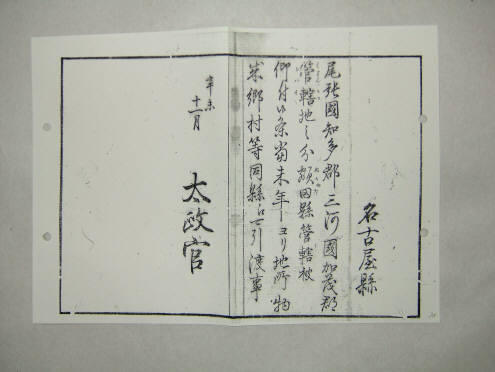 名古屋縣
尾張國知多郡三河國加茂郡
管轄地之分額田縣管轄被
仰付候条當未年ヨリ地所物
成郷村等同縣江可引渡事
辛未
十一月
太政官